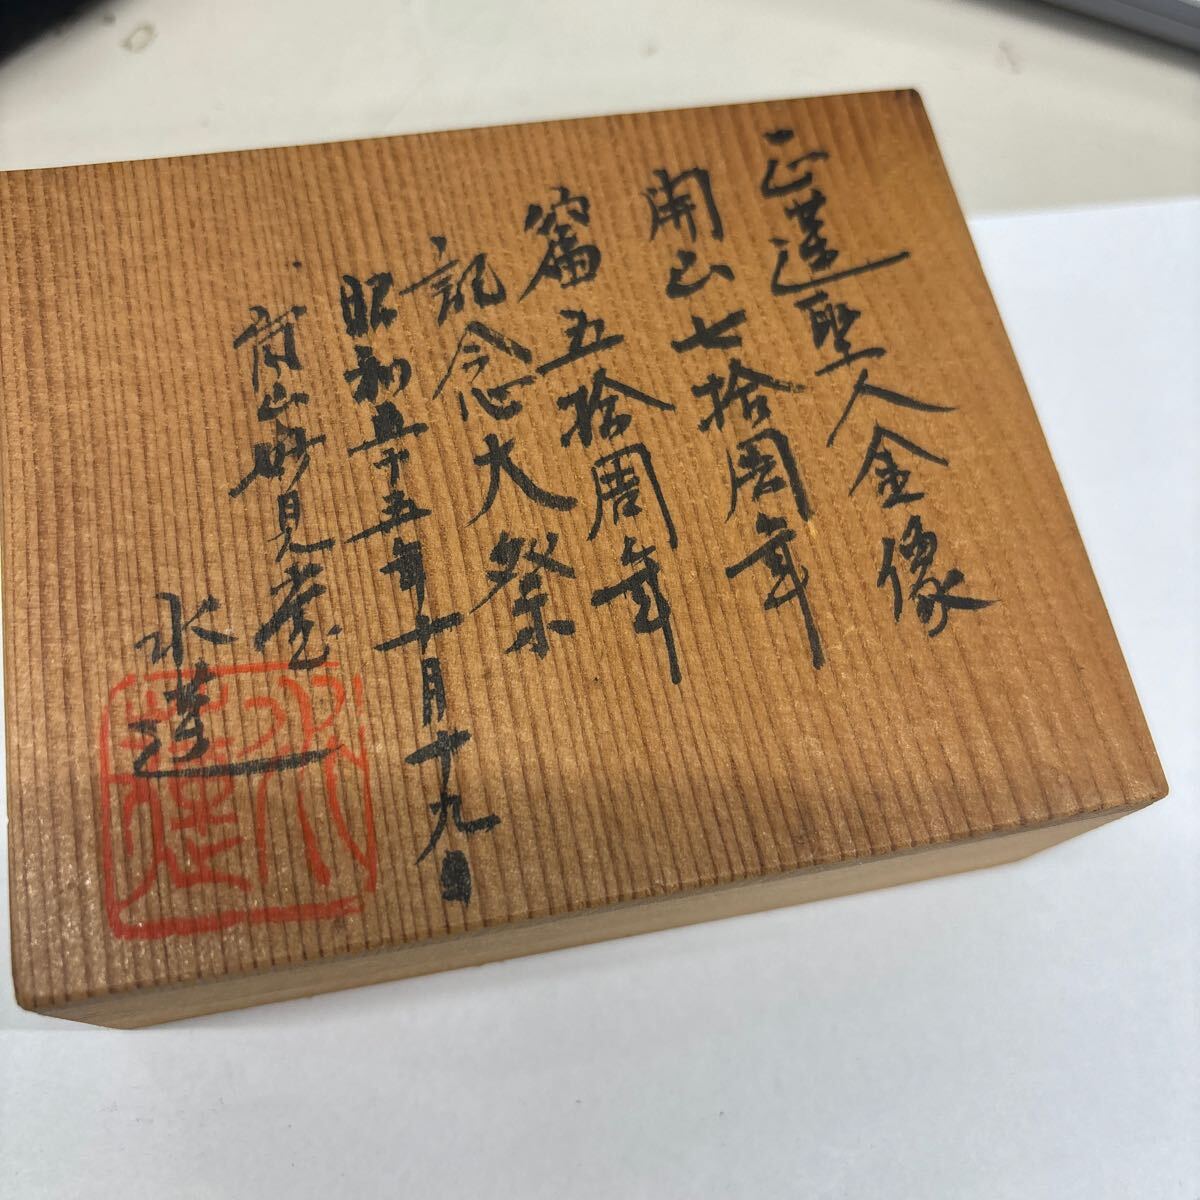 正蓮聖人金像
開山七拾周年
窟五拾周年
記念大祭
昭和五十五年十月十九日
山妙見堂
水蓮